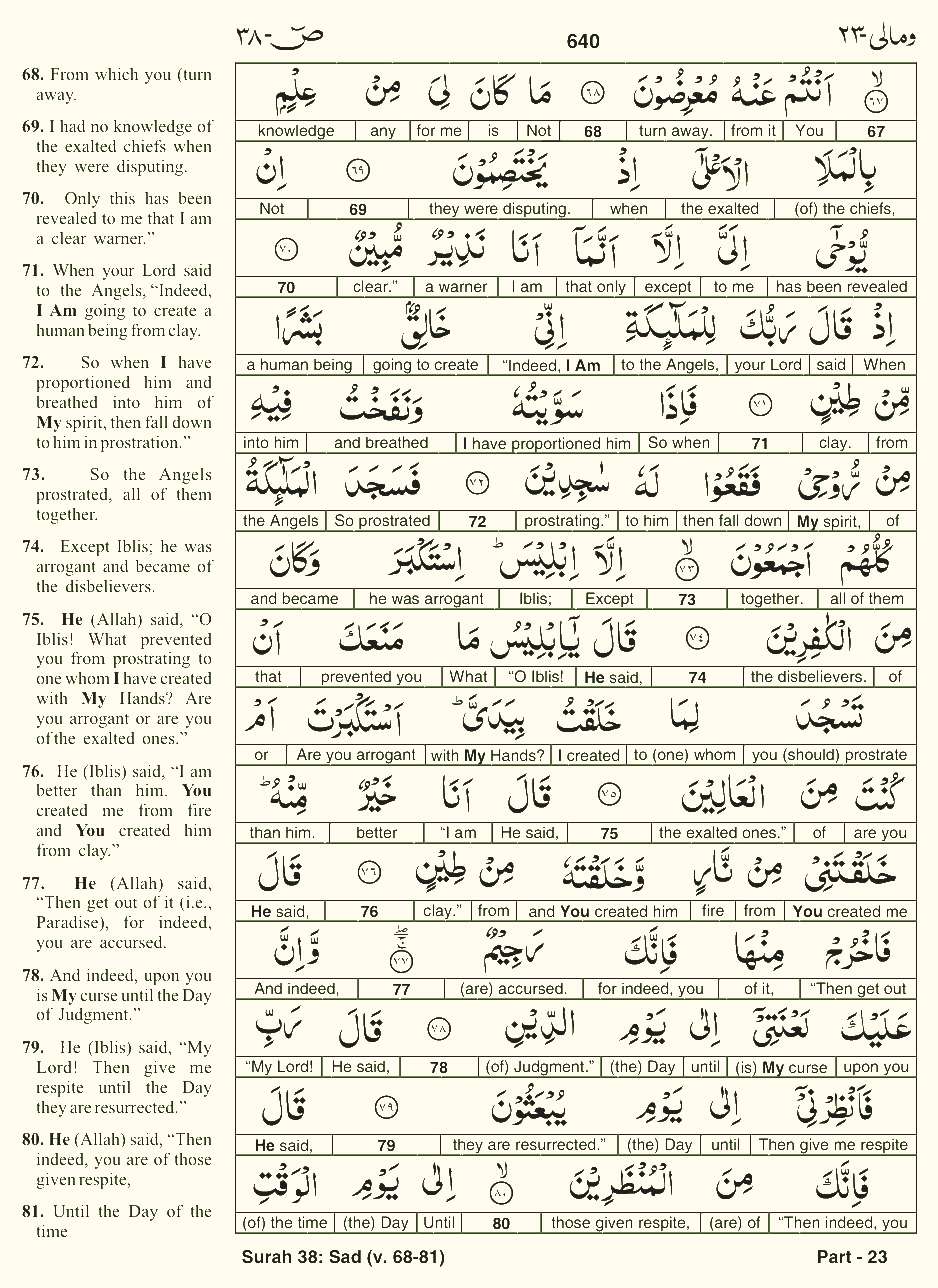 صٓ-٣٨ 640 ومالی-٢٣
68. From which you (turn
away.
69. I had no knowledge of
the exalted chiefs when
they were disputing.
70. Only this has been
revealed to me that I am
a clear warner.”
71. When your Lord said
to the Angels, “Indeed,
I Am going to create a
human being from clay.
72. So when I have
proportioned him and
breathed into him of
My spirit, then fall down
to him in prostration.”
73. So the Angels
prostrated, all of them
together.
74. Except Iblis; he was
arrogant and became of
the disbelievers.
75. He (Allah) said, “O
Iblis! What prevented
you from prostrating to
one whom I have created
with My Hands? Are
you arrogant or are you
of the exalted ones.”
76. He (Iblis) said, “I am
better than him. You
created me from fire
and You created him
from clay.”
77. He (Allah) said,
“Then get out of it (i.e.,
Paradise), for indeed,
you are accursed.
78. And indeed, upon you
is My curse until the Day
of Judgment.”
79. He (Iblis) said, “My
Lord! Then give me
respite until the Day
they are resurrected.”
80. He (Allah) said, “Then
indeed, you are of those
given respite,
81. Until the Day of the
time
ۙ﴿٦٧﴾ اَنْتُمْ عَنْهُ مُعْرِضُوْنَ ﴿٦٨﴾ مَا كَانَ لِيَ مِنْ عِلْمٍۭ
knowledge any for me is Not 68 turn away. from it You 67
بِالْمَلَاِ الْاَعْلٰٓى اِذْ يَخْتَصِمُوْنَ ﴿٦٩﴾ اِنْ
Not 69 they were disputing. when the exalted (of) the chiefs,
يُّوْحٰٓى اِلَيَّ اِلَّآ اَنَّمَآ اَنَا نَذِيْرٌ مُّبِيْنٌ ﴿٧٠﴾
70 clear.” a warner I am that only except to me has been revealed
اِذْ قَالَ رَبُّكَ لِلْمَلٰٓئِكَةِ اِنِّيْ خَالِقٌۢ بَشَرًا
a human being going to create “Indeed, I Am to the Angels, your Lord said When
مِّنْ طِيْنٍ ﴿٧١﴾ فَاِذَا سَوَّيْتُهٗ وَنَفَخْتُ فِيْهِ
into him and breathed I have proportioned him So when 71 clay. from
مِنْ رُّوْحِيْ فَقَعُوْا لَهٗ سٰجِدِيْنَ ﴿٧٢﴾ فَسَجَدَ الْمَلٰٓئِكَةُ
the Angels So prostrated 72 prostrating.” to him then fall down My spirit, of
كُلُّهُمْ اَجْمَعُوْنَ ۙ﴿٧٣﴾ اِلَّآ اِبْلِيْسَ ؕ اِسْتَكْبَرَ وَكَانَ
and became he was arrogant Iblis; Except 73 together. all of them
مِنَ الْكٰفِرِيْنَ ﴿٧٤﴾ قَالَ يٰٓاِبْلِيْسُ مَا مَنَعَكَ اَنْ
that prevented you What “O Iblis! He said, 74 the disbelievers. of
تَسْجُدَ لِمَا خَلَقْتُ بِيَدَيَّ ؕ اَسْتَكْبَرْتَ اَمْ
or Are you arrogant with My Hands? I created to (one) whom you (should) prostrate
كُنْتَ مِنَ الْعَالِيْنَ ﴿٧٥﴾ قَالَ اَنَا خَيْرٌ مِّنْهُ ؕ
than him. better “I am He said, 75 the exalted ones.” of are you
خَلَقْتَنِيْ مِنْ نَّارٍ وَّخَلَقْتَهٗ مِنْ طِيْنٍ ﴿٧٦﴾ قَالَ
He said, 76 clay.” from and You created him fire from You created me
فَاخْرُجْ مِنْهَا فَاِنَّكَ رَجِيْمٌ ﴿٧٧﴾ وَّاِنَّ
And indeed, 77 (are) accursed. for indeed, you of it, “Then get out
عَلَيْكَ لَعْنَتِيْٓ اِلٰى يَوْمِ الدِّيْنِ ﴿٧٨﴾ قَالَ رَبِّ
“My Lord! He said, 78 (of) Judgment.” (the) Day until (is) My curse upon you
فَاَنْظِرْنِيْٓ اِلٰى يَوْمِ يُبْعَثُوْنَ ﴿٧٩﴾ قَالَ
He said, 79 they are resurrected.” (the) Day until Then give me respite
فَاِنَّكَ مِنَ الْمُنْظَرِيْنَ ۙ﴿٨٠﴾ اِلٰى يَوْمِ الْوَقْتِ
(of) the time (the) Day Until 80 those given respite, (are) of “Then indeed, you
Surah 38: Sad (v. 68-81) Part - 23